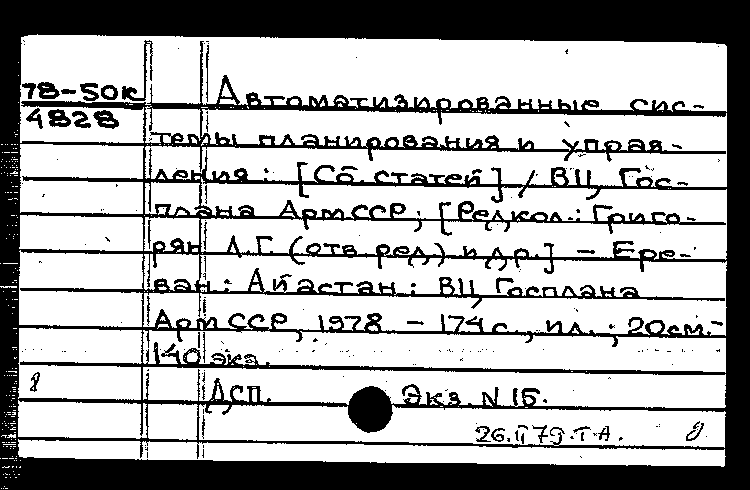 78-50к
4828
Автоматизированные сис-
темы планирования и управ-
ления: [Сб. статей] / ВЦ Гос-
плана АрмССР; [Редкол.: Григо-
рян Л.Г. (отв. ред.) и др.] – Ере-
ван: Айастан: ВЦ Госплана
АрмССР, 1978 – 174 с., ил.; 20 см.-
140 экз.
ДСП. Экз. N 15.
26.II 79. Т.А.